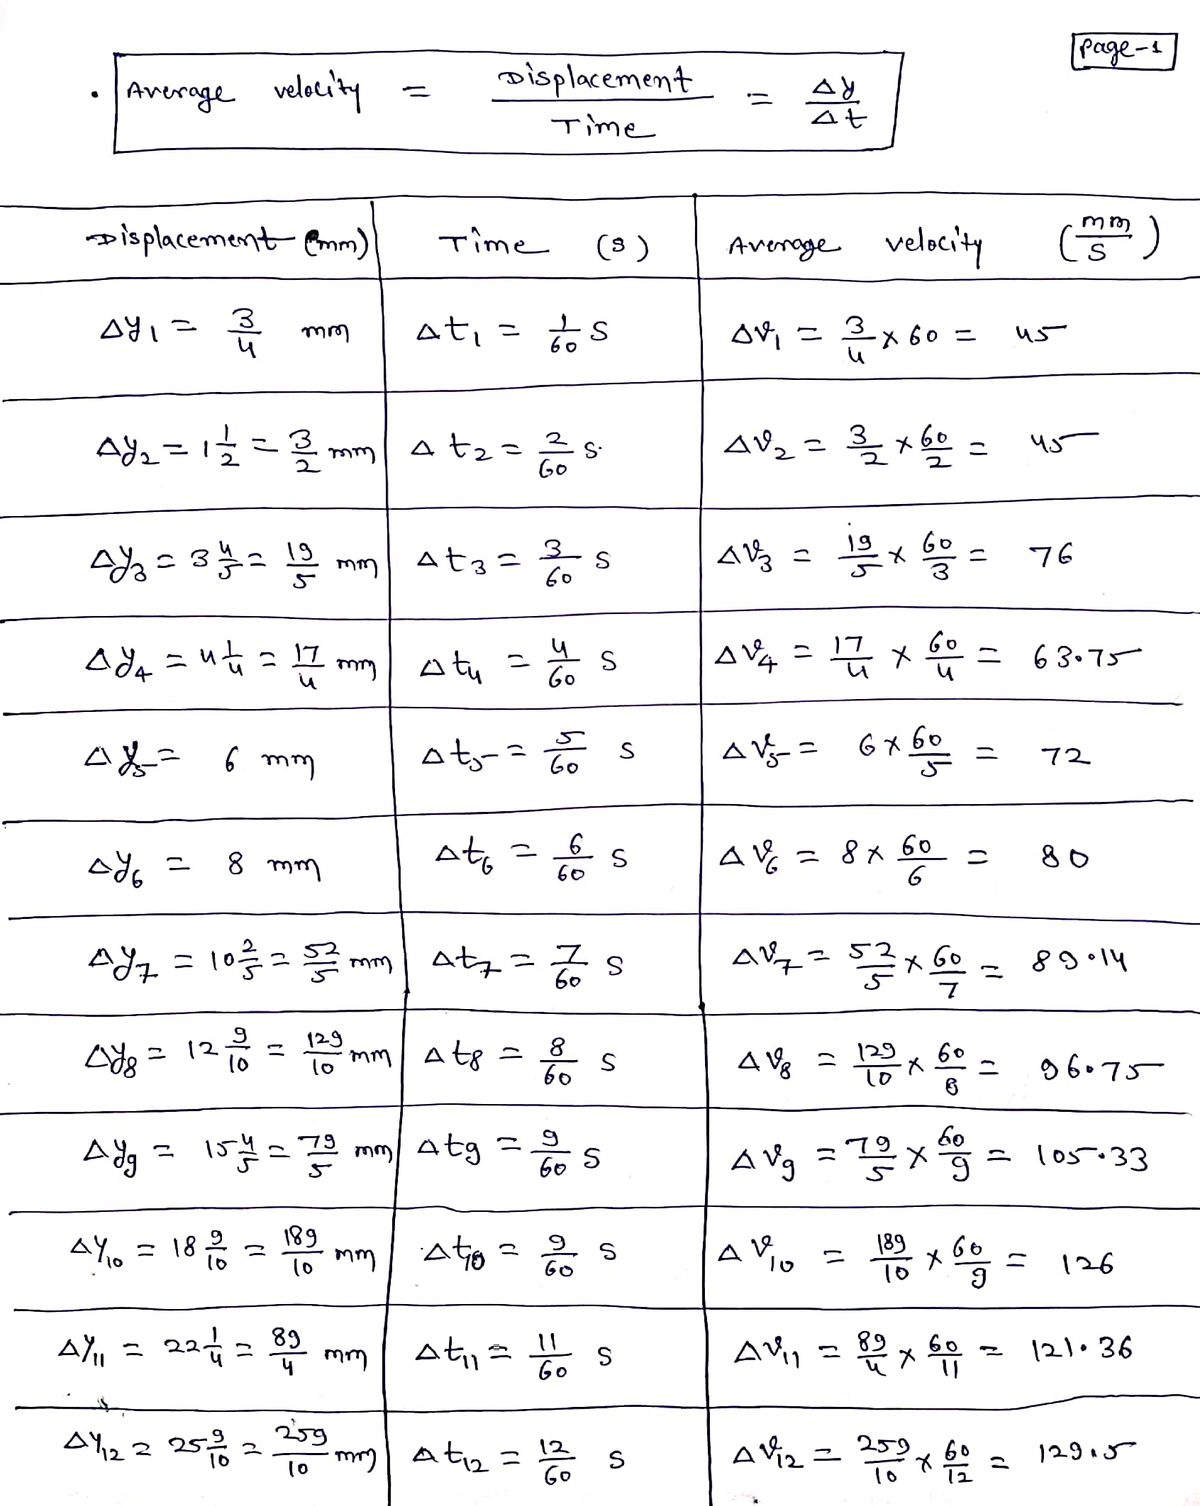 Page-1
• Average velocity = Displacement / Time = Δy / Δt
Displacement (mm) Time (s) Average velocity (mm/s)
Δy₁ = 3/4 mm Δt₁ = 1/60 s Δv₁ = 3/4 × 60 = 45
Δy₂ = 1 1/2 = 3/2 mm Δt₂ = 2/60 s. Δv₂ = 3/2 × 60/2 = 45
Δy₃ = 3 4/5 = 19/5 mm Δt₃ = 3/60 s Δv₃ = 19/5 × 60/3 = 76
Δy₄ = 4 1/4 = 17/4 mm Δt₄ = 4/60 s Δv₄ = 17/4 × 60/4 = 63.75
Δy₅ = 6 mm Δt₅ = 5/60 s Δv₅ = 6 × 60/5 = 72
Δy₆ = 8 mm Δt₆ = 6/60 s Δv₆ = 8 × 60/6 = 80
Δy₇ = 10 2/5 = 52/5 mm Δt₇ = 7/60 s Δv₇ = 52/5 × 60/7 = 89.14
Δy₈ = 12 9/10 = 129/10 mm Δt₈ = 8/60 s Δv₈ = 129/10 × 60/8 = 96.75
Δy₉ = 15 4/5 = 79/5 mm Δt₉ = 9/60 s Δv₉ = 79/5 × 60/9 = 105.33
Δy₁₀ = 18 9/10 = 189/10 mm Δt₁₀ = 9/60 s Δv₁₀ = 189/10 × 60/9 = 126
Δy₁₁ = 22 1/4 = 89/4 mm Δt₁₁ = 11/60 s Δv₁₁ = 89/4 × 60/11 = 121.36
Δy₁₂ = 25 9/10 = 259/10 mm Δt₁₂ = 12/60 s Δv₁₂ = 259/10 × 60/12 = 129.5